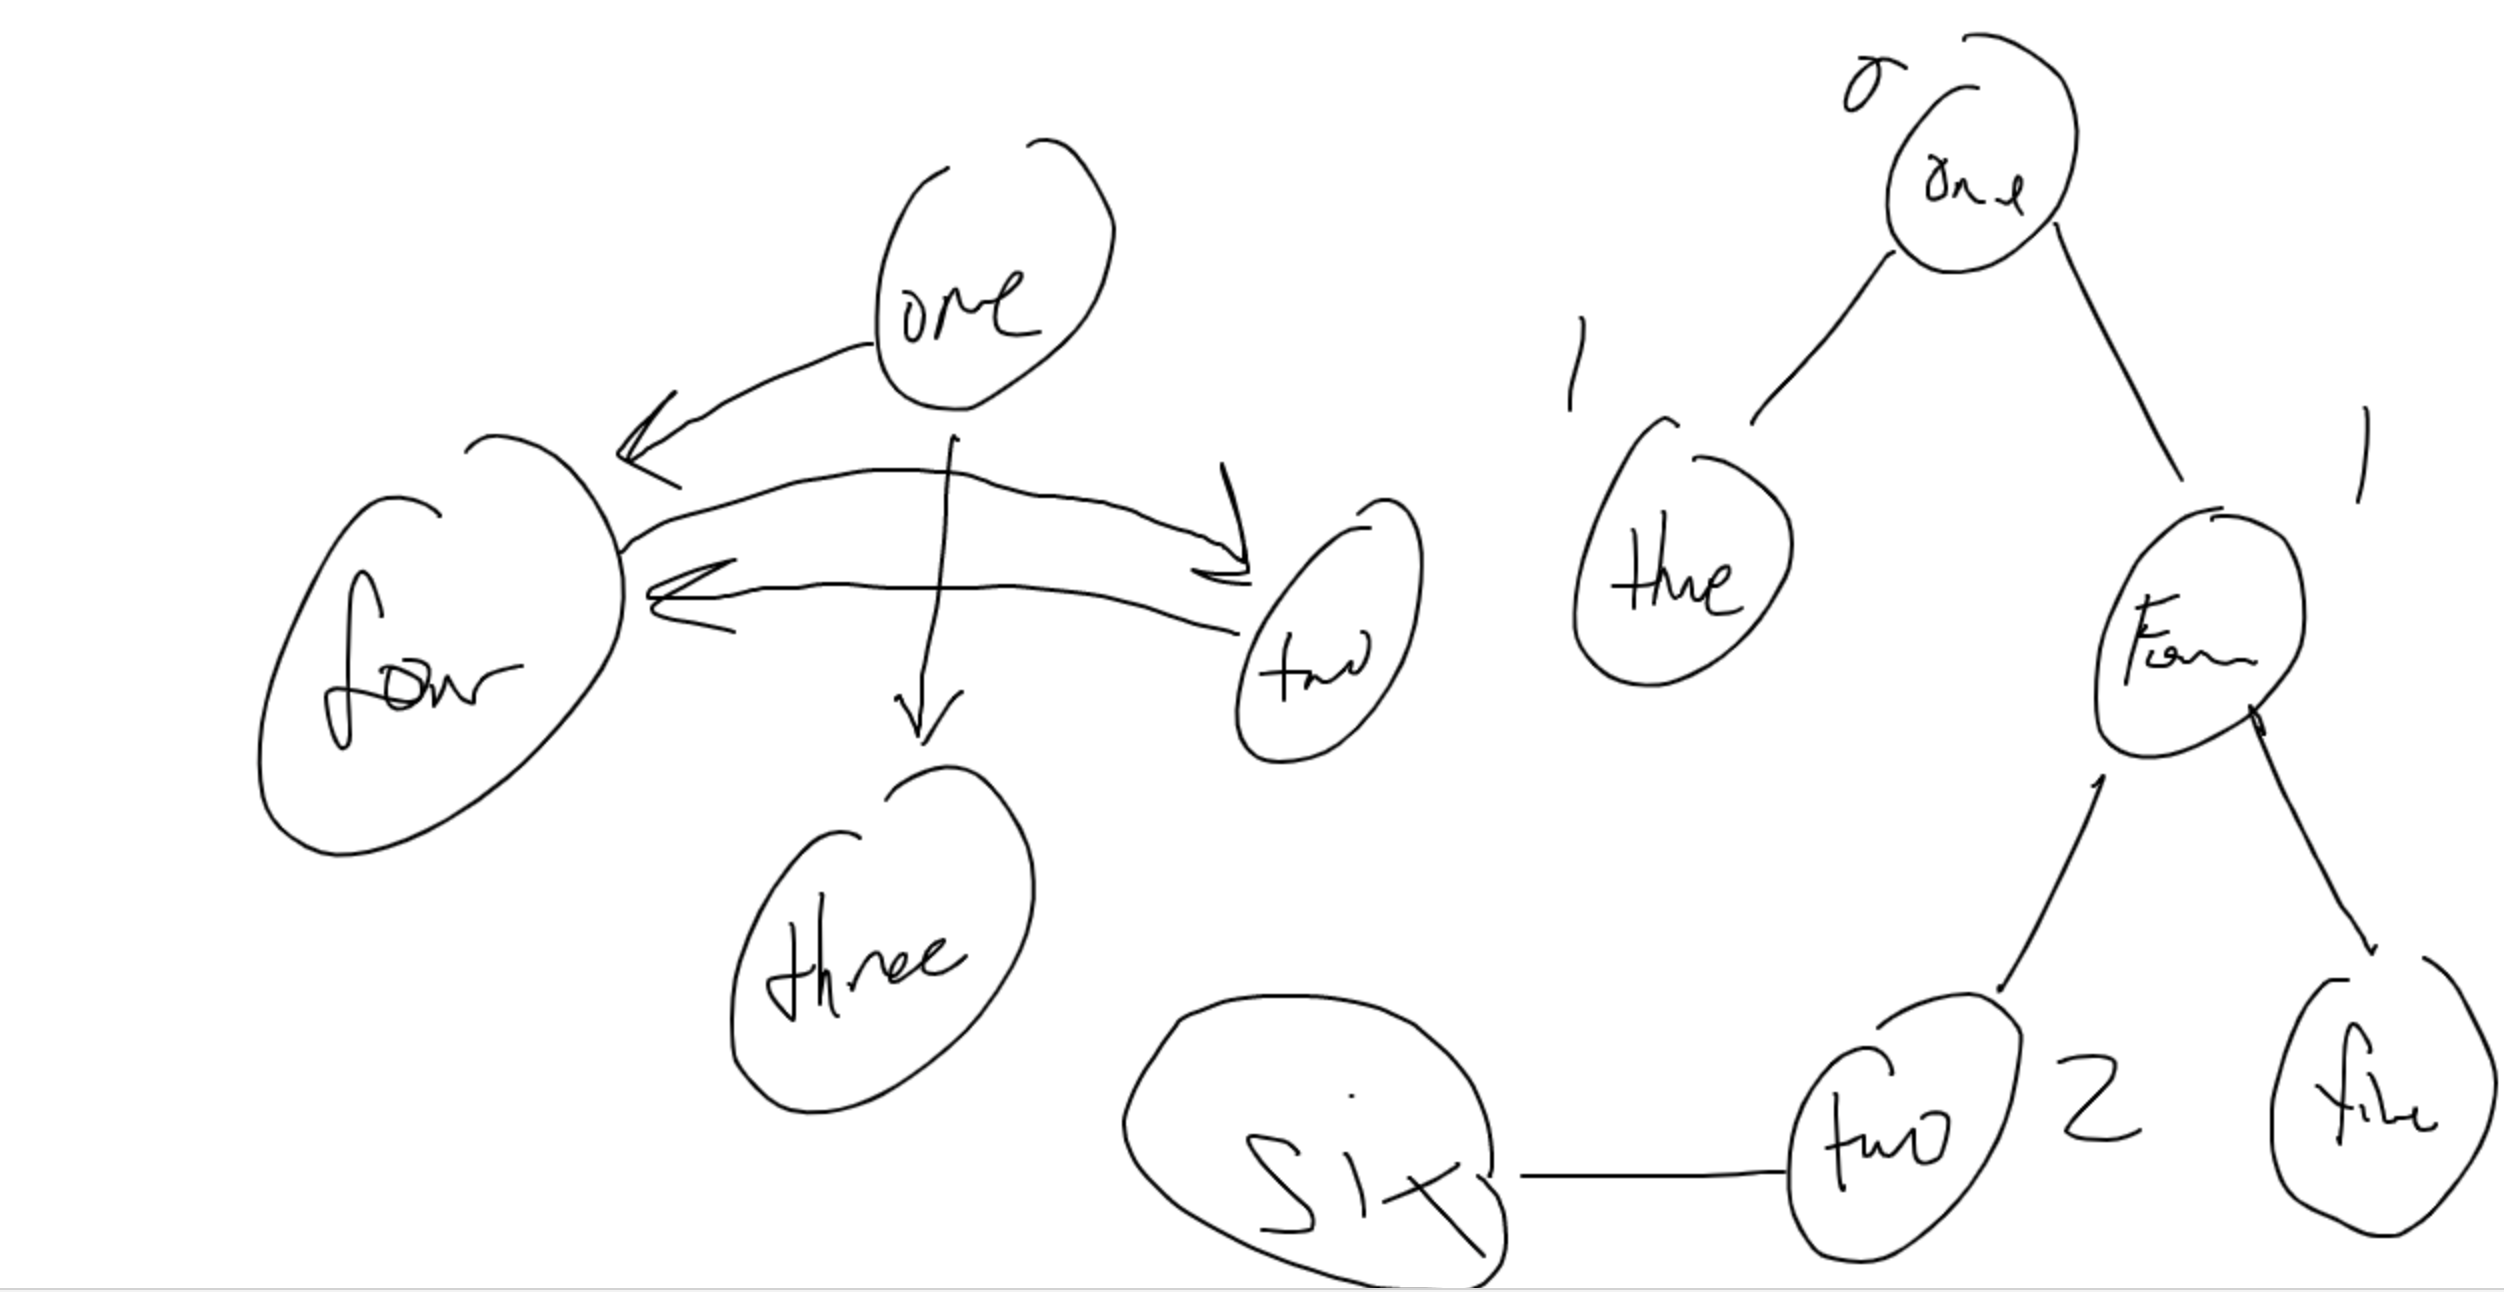 one
four
two
three
0
one
1
three
1
Four
two
2
five
six